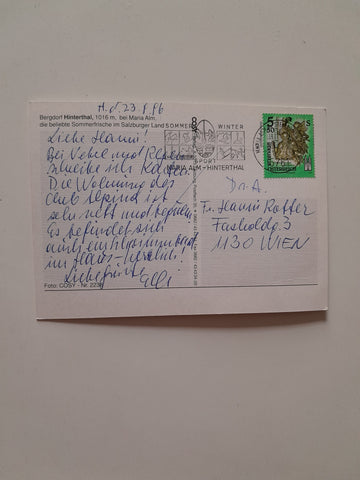 H.d. 23.8.96
Bergdorf Hinterthal, 1016 m, bei Maria Alm,
die beliebte Sommerfrische im Salzburger Land
SOMMER WINTER
SPORT
MARIA ALM-HINTERTHAL
5 S
ÖSTERREICH
Liebe Hanni!
Bei Nebel und Regen
schreibe ich Karten
Die Wohnung des
Club Alpina ist
sehr nett und
Es befindet sich
auch ein
im Haus
Liebe Grüße Elli
Dr. A.
Fr. Hanni Rotter
Fasholdg. 3
1130 WIEN
Foto: COSY - Nr. 223